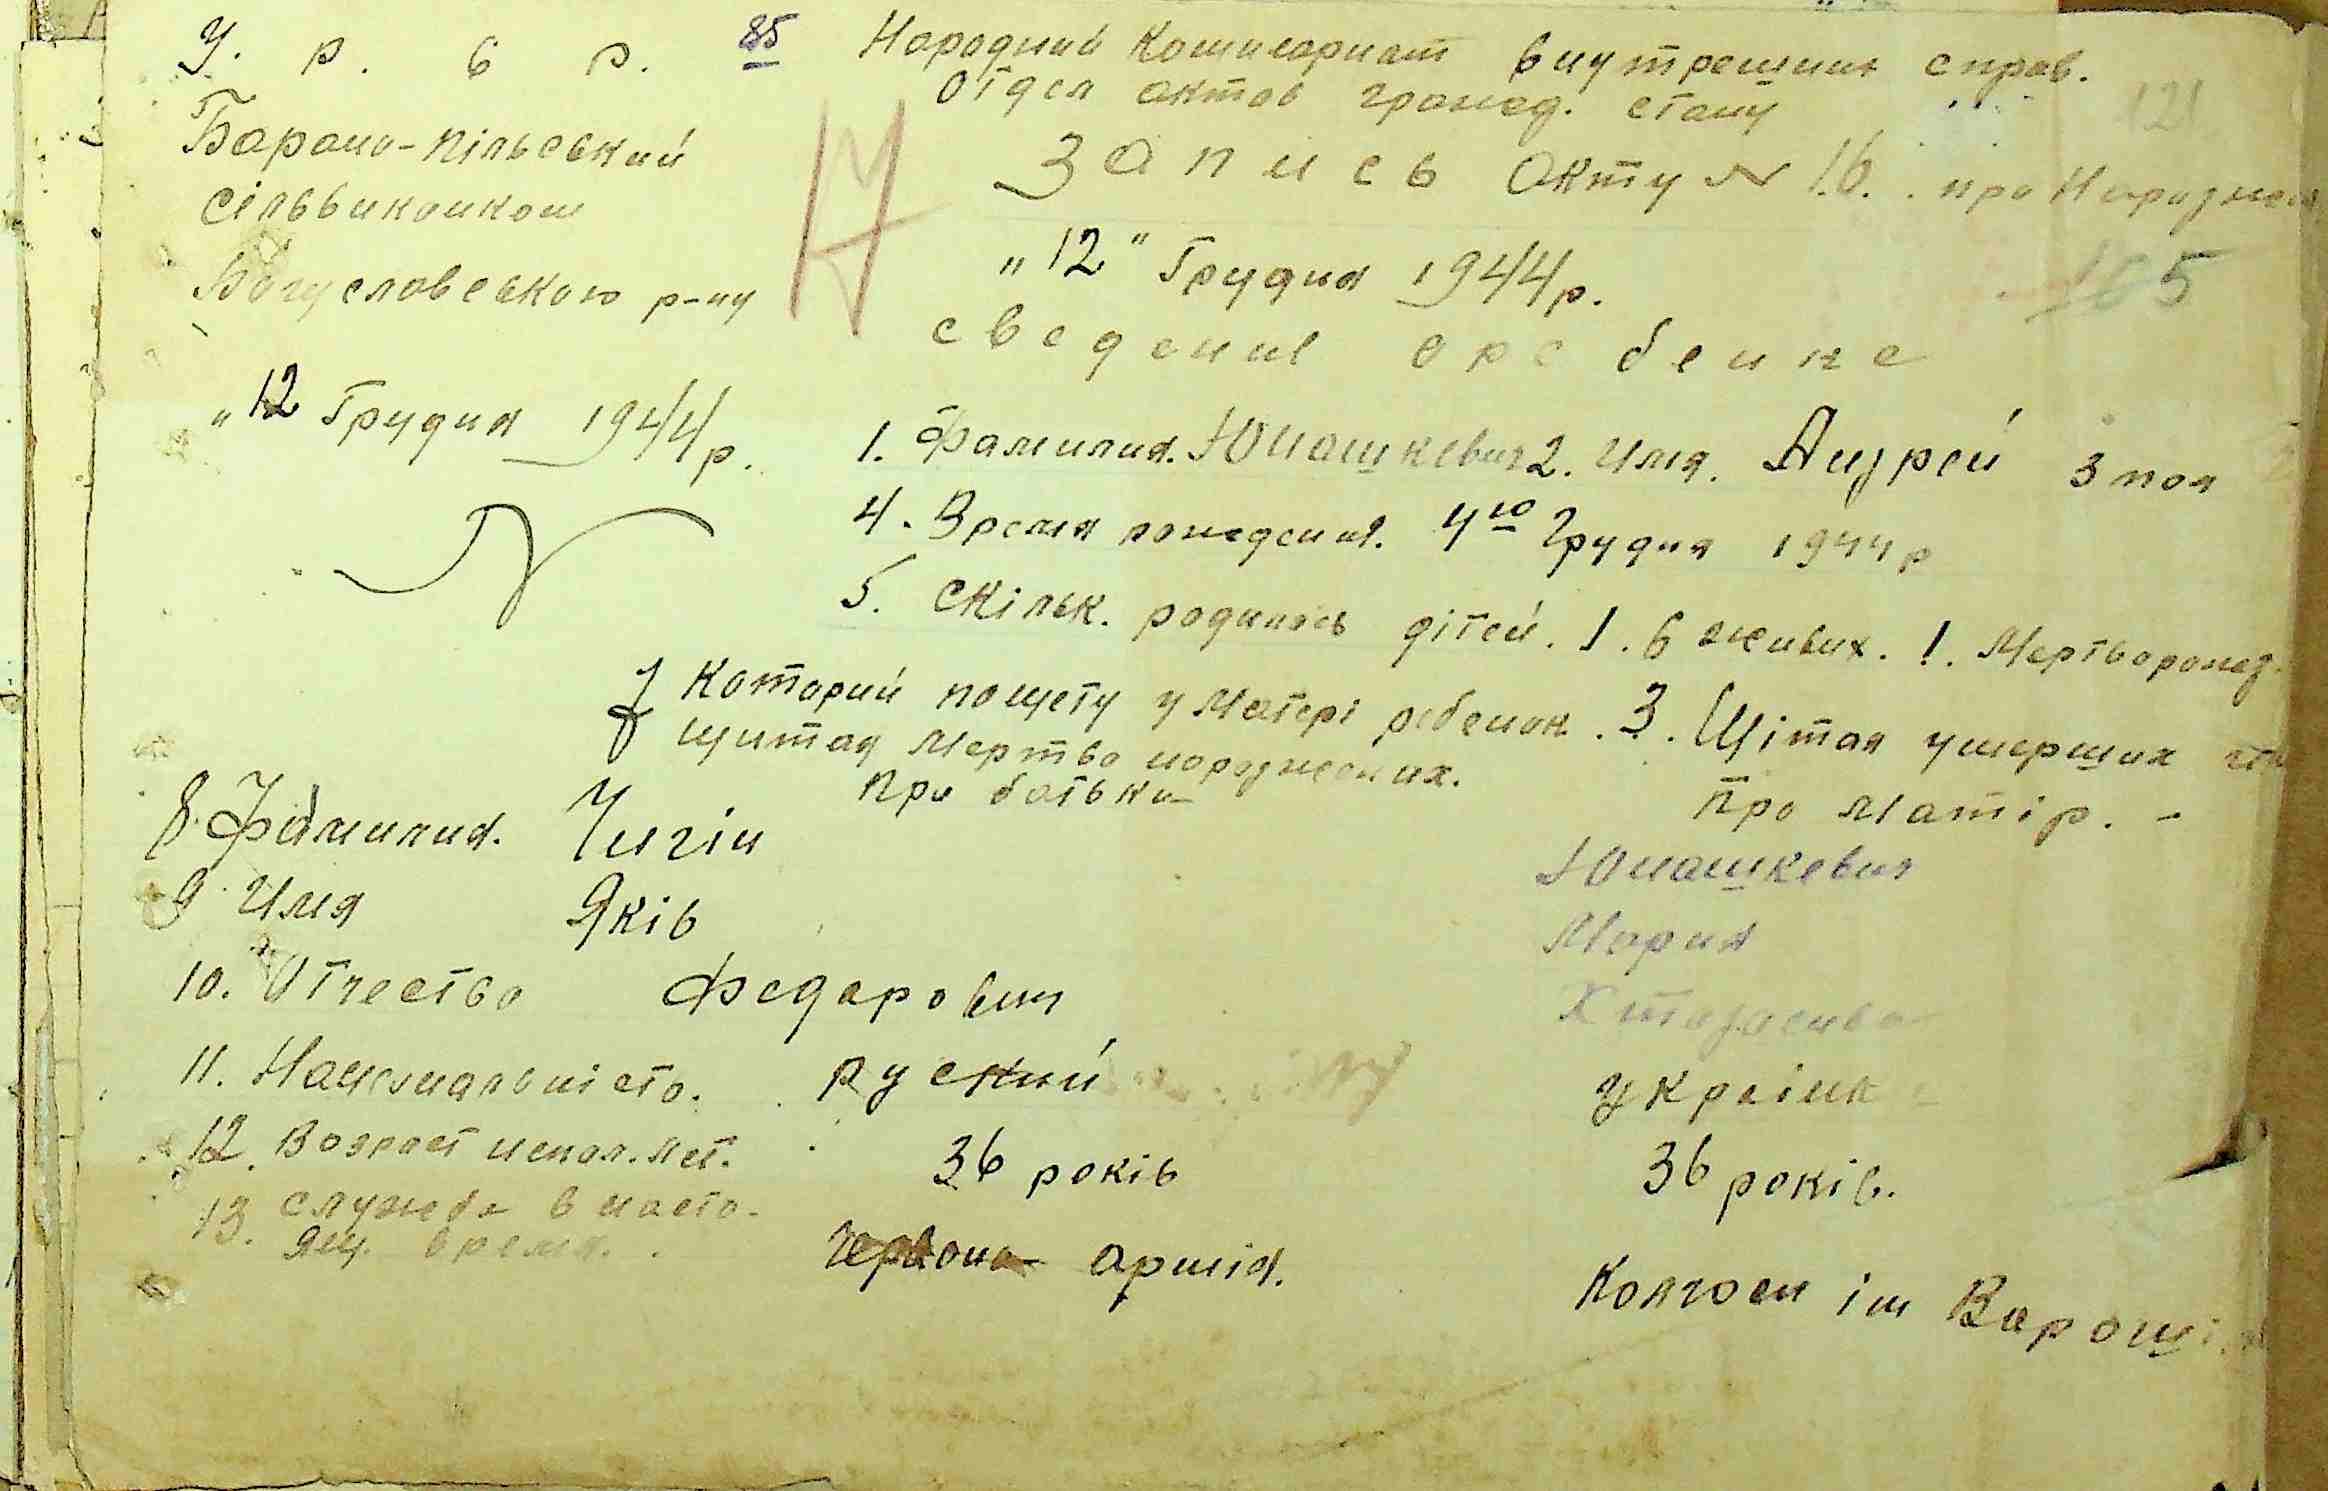 У. р. с р. 85
Народний Комисариат внутрешних справ.
Отдел актов гражд. стану
Запись Акту № 16. про Нарожден
Барано-пільський
сільвиконком
Богуславського р-ну
121
"12" Грудня 1944 р.
105
сведения оребенке
"12 Грудня 1944 р.
1. Фамилия. Юнашкевич 2. Имя. Андрей 3 пол
4. Время рождения. 4го Грудня 1944 р
5. Скільк. родилось дітей. 1. в живих. 1. Мертворожд.
7 Которий пощету у Матері ребенок. 3. Щітая умерших
щитая мертво нарождених.
При батьки
Про Матір. -
8. Фамилия. Чигін Юнашкевич
9. Имя Яків Мария
10. Отчество Федарович
11. Национальність. руский украінка
12. Возраст испол. лет. 36 років 36 років.
13. служба в насто-
ящ. время. червона армія. Колгосп ім Вароші